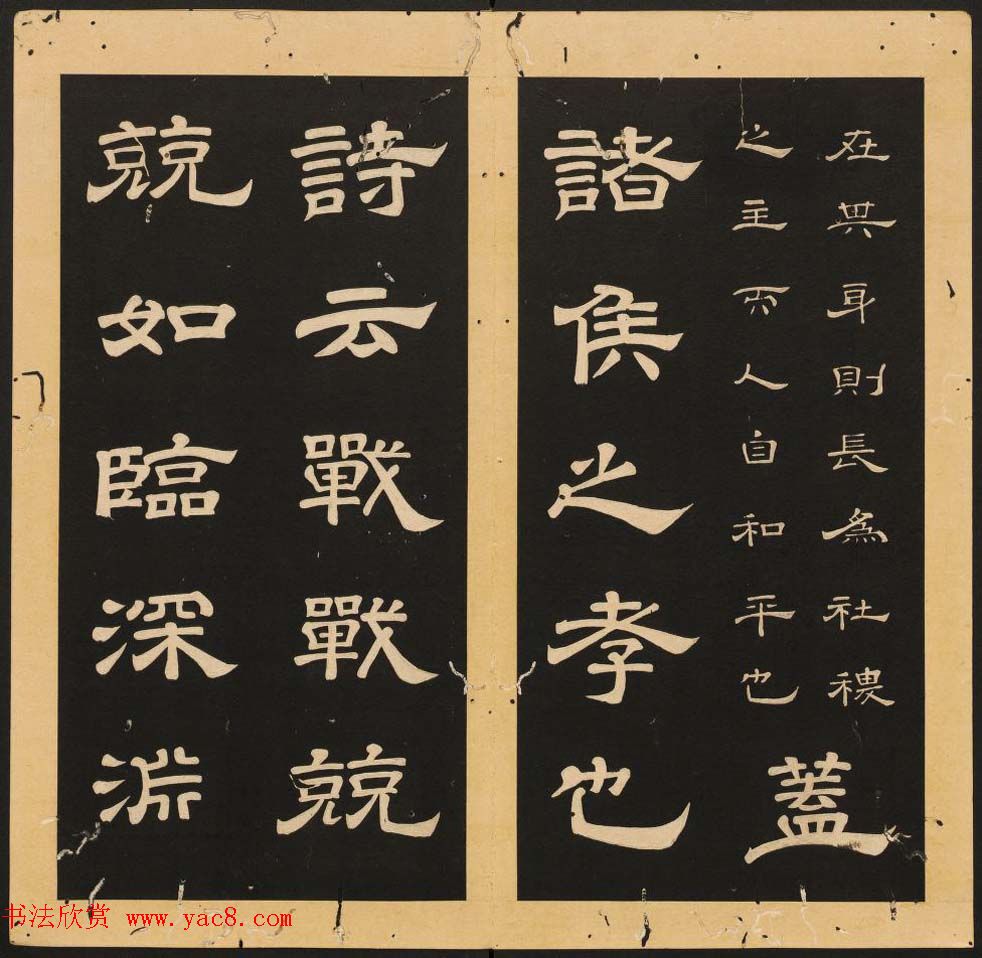 在其身則長為社稷
之主而人自和平也
蓋
諸侯之孝也
詩云戰戰兢
兢如臨深淵
书法欣赏 www.yac8.com